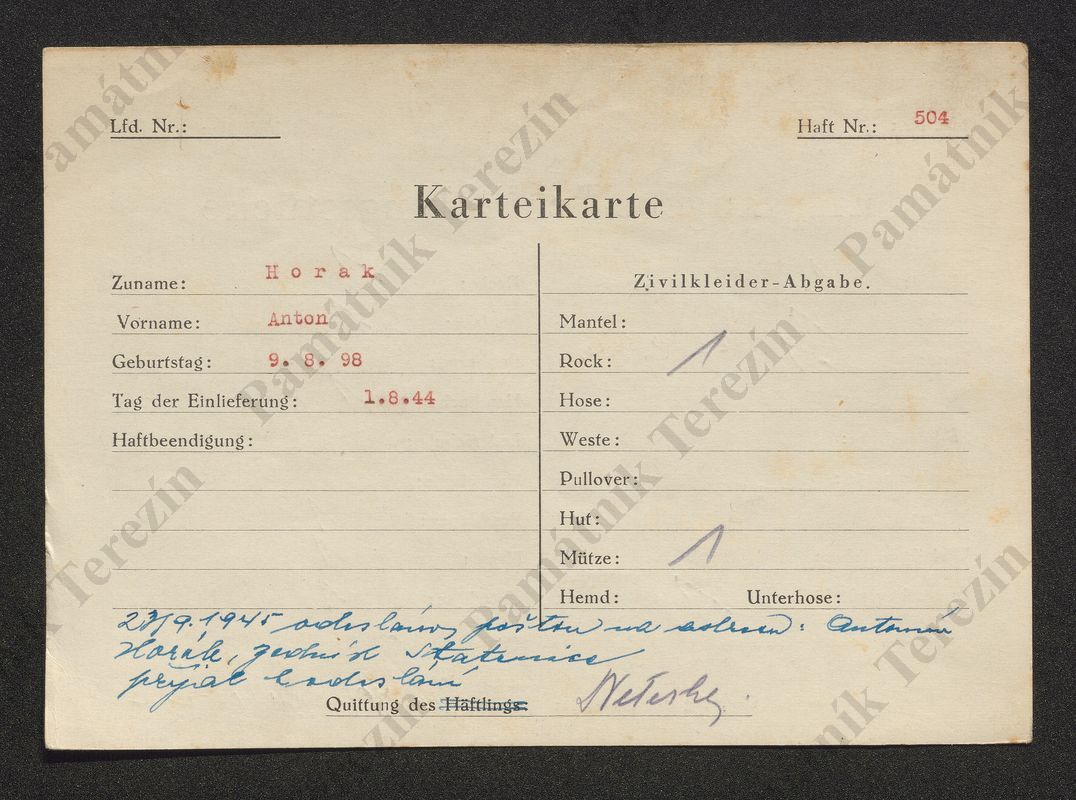 Lfd. Nr.:
Haft Nr.: 504
Karteikarte
Zuname: Horak
Vorname: Anton
Geburtstag: 9. 8. 98
Tag der Einlieferung: 1.8.44
Haftbeendigung:
Zivilkleider-Abgabe.
Mantel:
Rock: 1
Hose:
Weste:
Pullover:
Hut:
Mütze: 1
Hemd: Unterhose:
23/9.1945 odesláno poštou na adresu: Antonín
Horák, zedník Statenice
přijal k odeslání
Quittung des Häftlings:
Památník Terezín
Památník Terezín
Památník Terezín
Památník Terezín
Památník Terezín